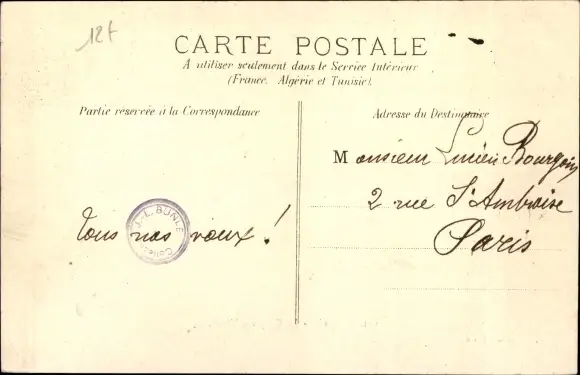 12f
CARTE POSTALE
A utiliser seulement dans le Service Intérieur
(France, Algérie et Tunisie).
Partie réservée à la Correspondance
Tous nos vœux !
J.-L. BUNLE
Adresse du Destinataire
Monsieur Lucien Bourgoin
2 rue St Ambroise
Paris